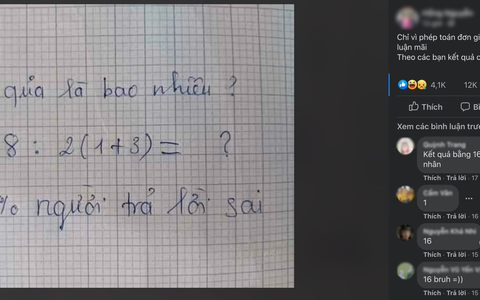 quả là bao nhiêu ?
8 : 2(1+3) = ?
% người trả lời sai
Chỉ vì phép toán đơn gi
luận mãi
Theo các bạn kết quả c
4,1K 12K
Thích
Xem các bình luận trướ
Kết quả bằng 16
nhân
Thích · Trả lời · 17
1
Thích · Trả lời · 16
16
Thích · Trả lời · 15
16 bruh =))
Thích · Trả lời · 15